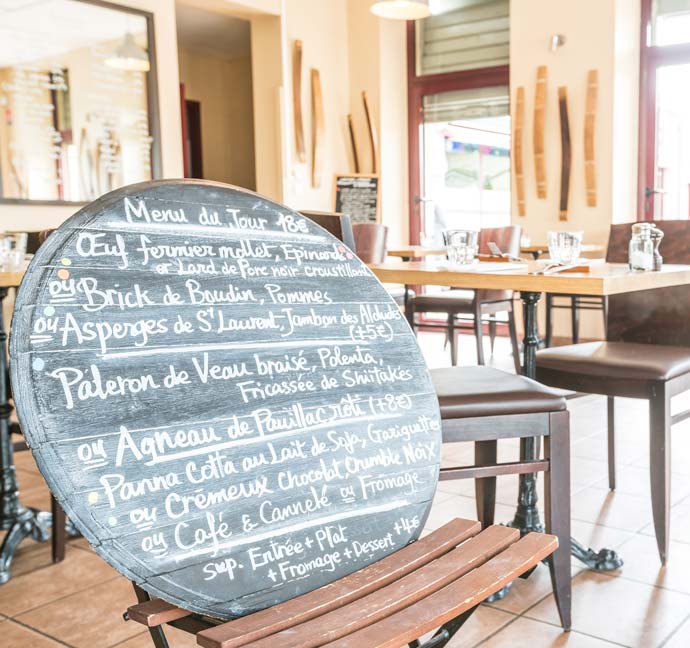 Menu du Jour 18€
Œuf fermier mollet, Epinard
et Lard de Porc noir croustillant
ou Brick de Boudin, Pommes
ou Asperges de St Laurent, Jambon des Aldudes
(+5€)
Paleron de Veau braisé, Polenta,
Fricassée de Shiitakés
ou Agneau de Pauillac rôti (+8€)
Panna Cotta au Lait de Soja, Gariguette
ou Crémeux chocolat, Crumble Noix
ou Café & Cannelé ou Fromage
sup. Entrée + Plat
+ Fromage + Dessert + 4€